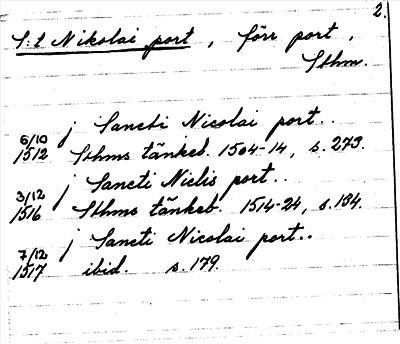 2.
S:t Nikolai port, förr port,
Sthm.
j Sancti Nicolai port..
6/10 1512 Sthms tänkeb. 1504-14, s. 273.
j Sancti Niclis port..
3/12 1516 Sthms tänkeb. 1514-24, s. 134.
j Sancti Nicolai port..
7/12 1517 ibid. s. 179.